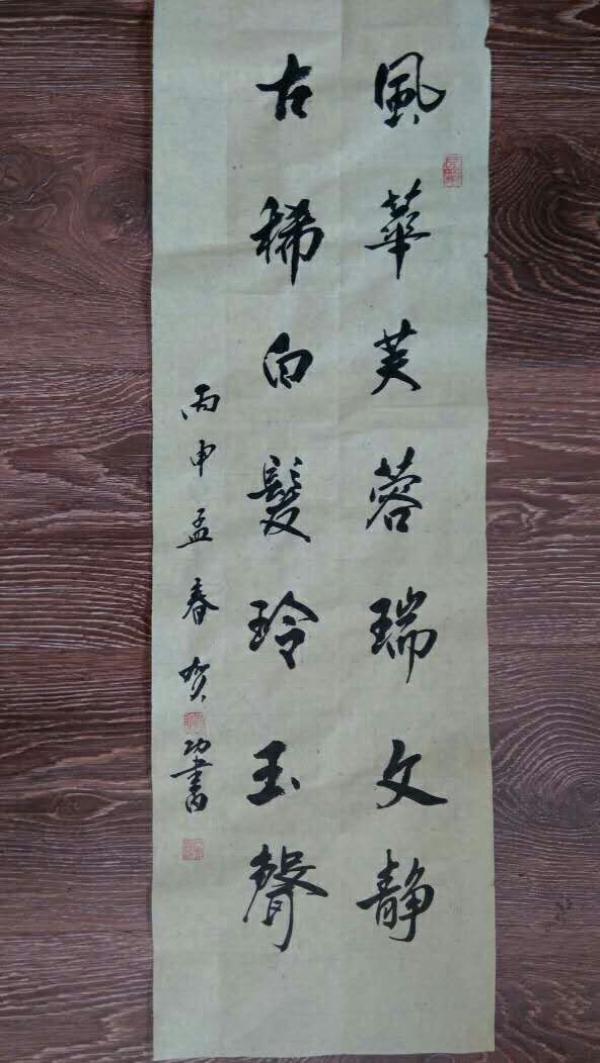 風華芙蓉瑞文静
古稀白髮玲玉聲
丙申孟春贺功書